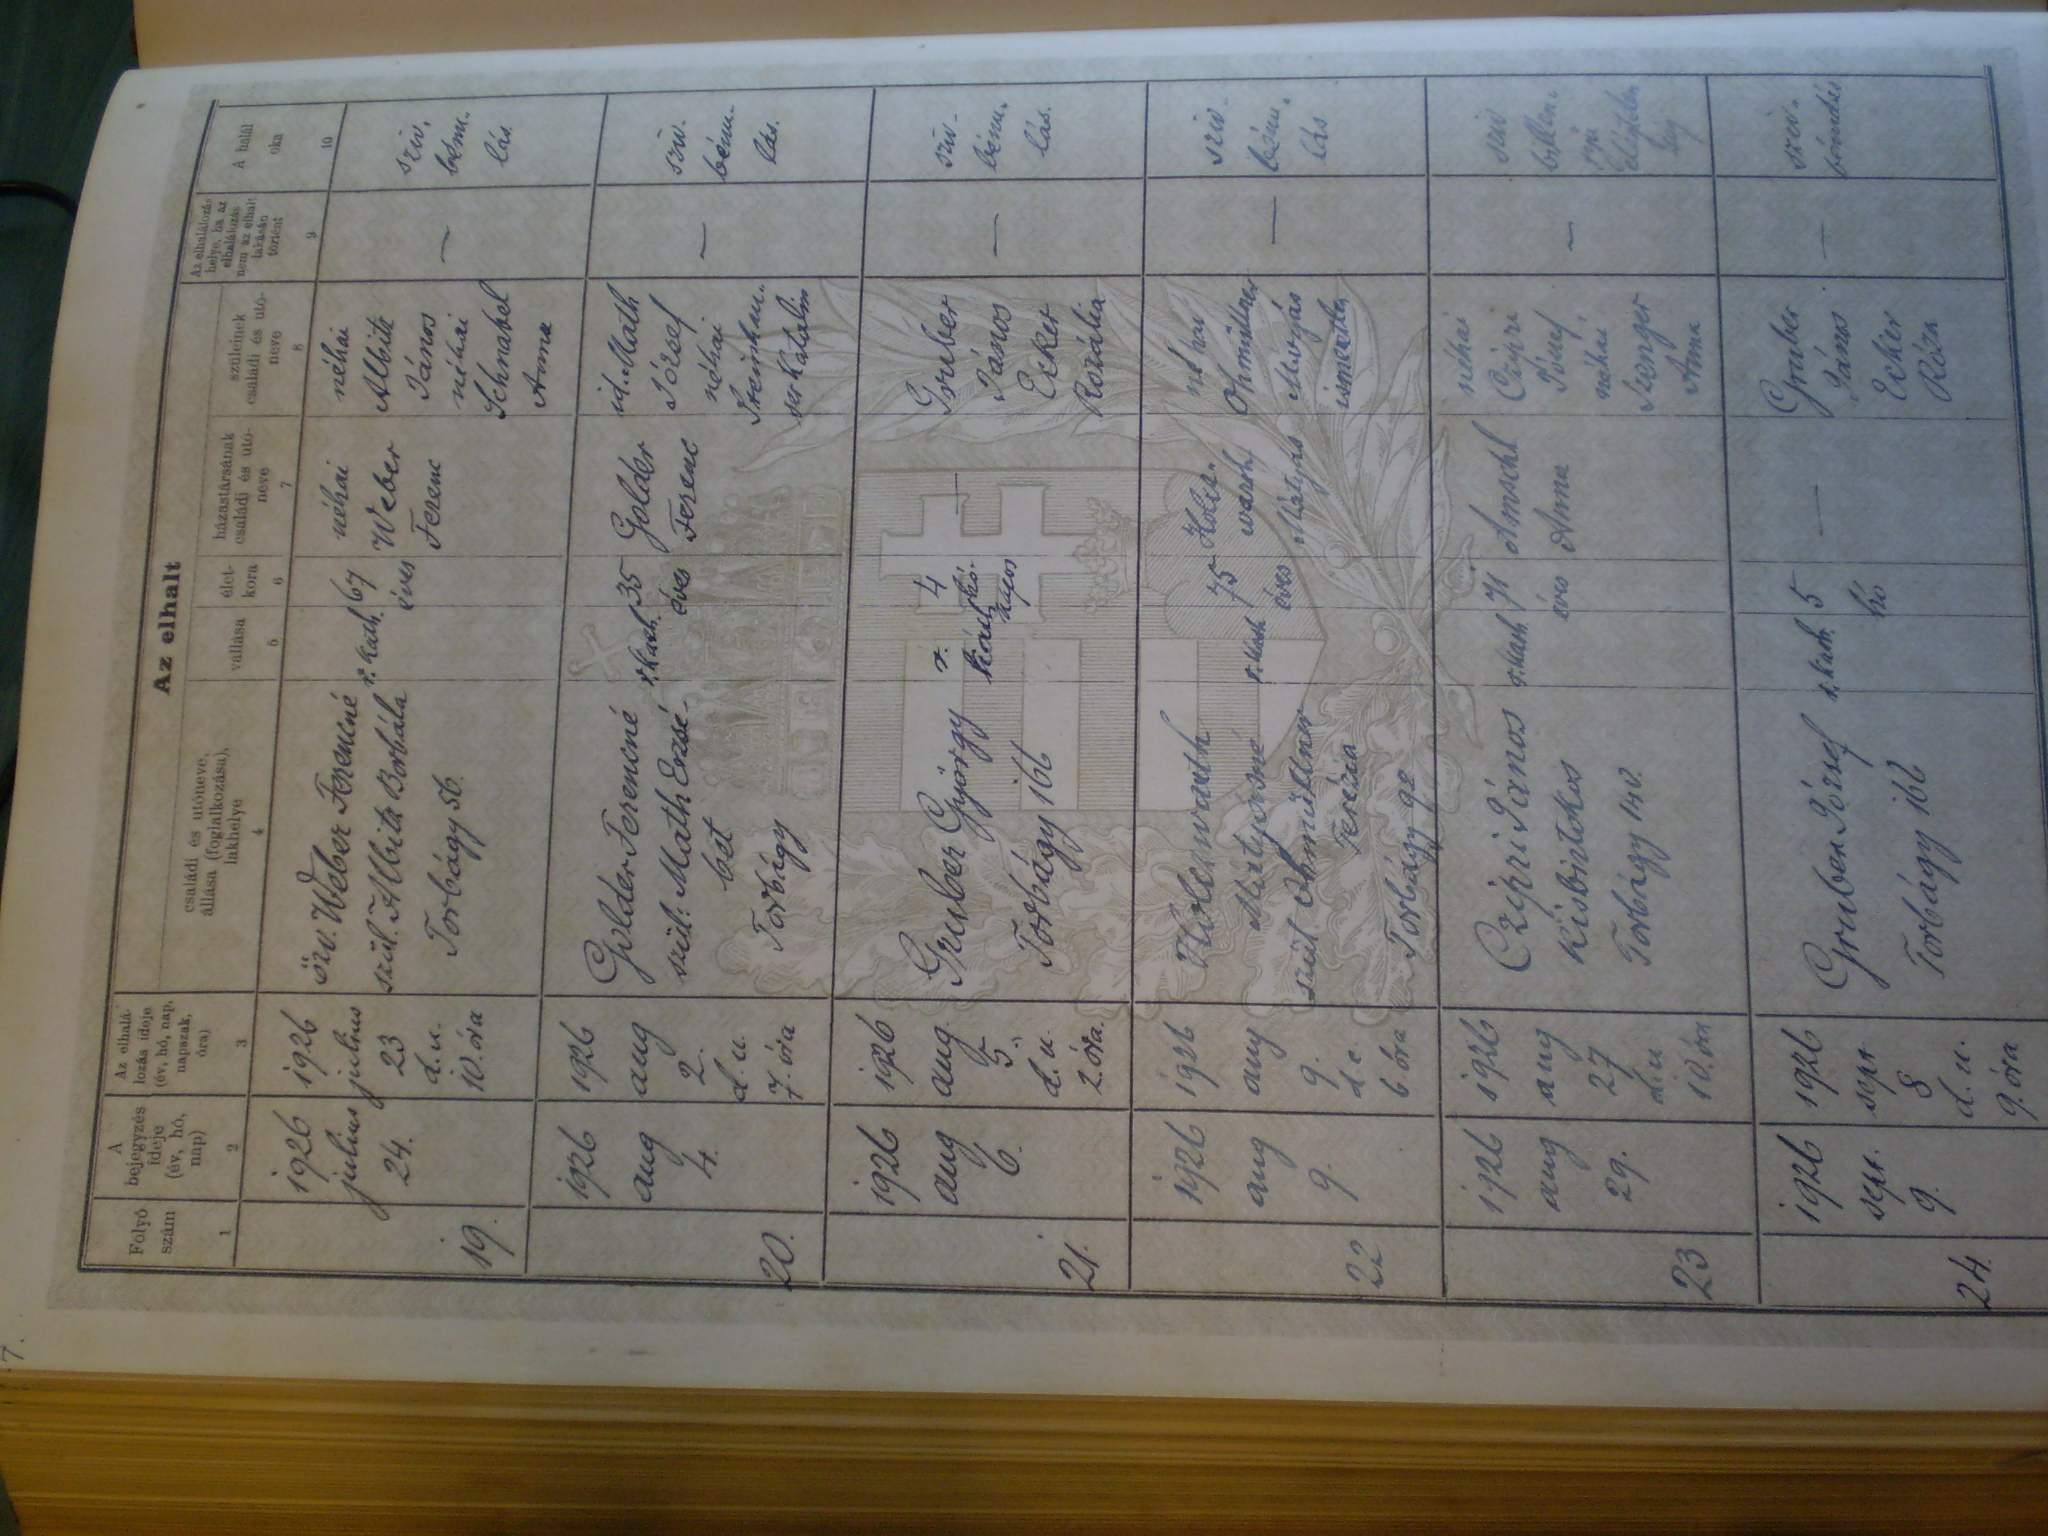 7.
Az elhalt
Folyó
szám
A
bejegyzés
ideje
(év, hó,
nap)
Az elhalá-
lozás ideje
(év, hó, nap,
napszak,
óra)
családi és utóneve,
állása (foglalkozása),
lakhelye
vallása
élet-
kora
házastársának
családi és utó-
neve
szüleinek
családi és utó-
neve
Az elhalálozás
helye, ha az
elhalálozás
nem az elhalt
lakásán
történt
A halál
oka
1
2
3
4
5
6
7
8
9
10
19.
1926
julius
24.
1926
julius
23
d. u.
10. óra
özv. Weber Ferencné
szül. Albitz Borbála
Torbágy 56.
r. kath.
67
éves
néhai
Weber
Ferenc
néhai
Albitz
János
néhai
Schnabel
Anna
—
sziv.
bénu.
lás
20.
1926
aug
4.
1926
aug
2.
d. u.
7. óra
Golder Ferencné
szül: Math Erzsé-
bet
Torbágy
r. kath.
35
éves
Golder
Ferenc
id. Math
József
néhai
ser Katalin
—
sziv.
bénu.
lás.
21.
1926
aug
6.
1926
aug.
5.
d. u.
2. óra.
Gruber György
Torbágy 166
r.
4
hó-
napos
—
Gruber
János
Ecker
Rozália
—
sziv-
bénu.
lás.
22
1926
aug
9.
1926
aug
9.
d. e.
6 óra
Mátyásné
szül. Ohmüllner
Terézia
Torbágy 92
r. kath
75
éves
Mátyás
—
sziv-
bénu.
lás
23
1926
aug
29.
1926
aug
27
d. u
10. óra
Czipri János
Kisbirtokos
Torbágy 140.
r. kath.
71
éves
Amschl
Anna
néhai
Czipri
József
néhai
Szenger
Anna
—
sziv
billen.
24.
1926
sept.
9.
1926
sept
8
d. u.
9. óra
Gruber József
Torbágy 166
r. kath.
5
hó
—
Gruber
János
Ecker
Róza
—
sziv-